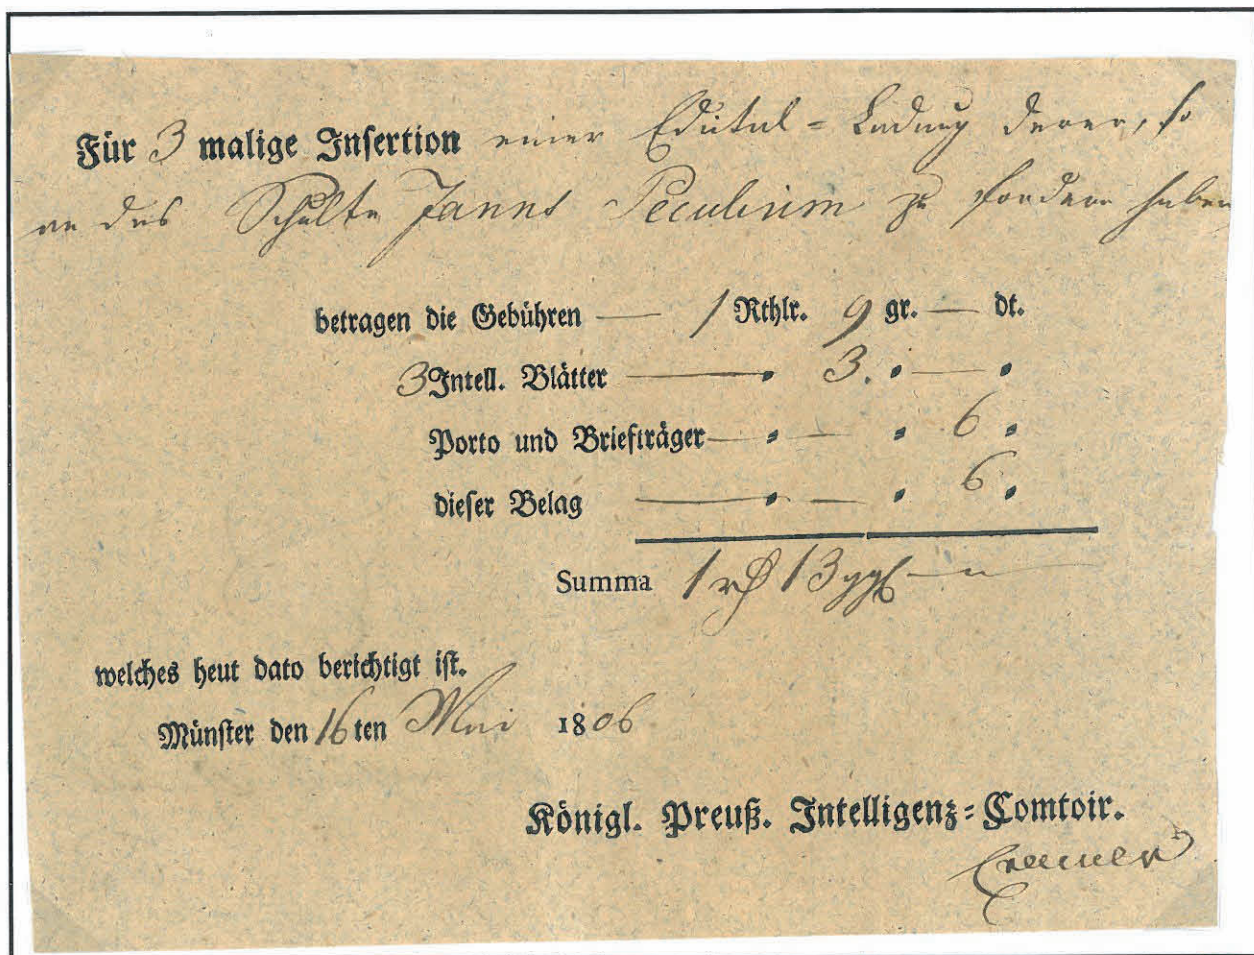 Für 3 malige Insertion einer Edictal-Ladung derer, so
an des Schulte Janns Peculium zu fordern haben
betragen die Gebühren — 1 Rthlr. 9 gr. — dt.
3 Intell. Blätter — „ 3. „ — „
Porto und Briefträger — „ — „ 6 „
dieser Belag — „ — „ 6 „
Summa 1 rthl 13 ggl —
welches heut dato berichtigt ist.
Münster den 16ten Mai 1806
Königl. Preuß. Intelligenz-Comtoir.
Cramer